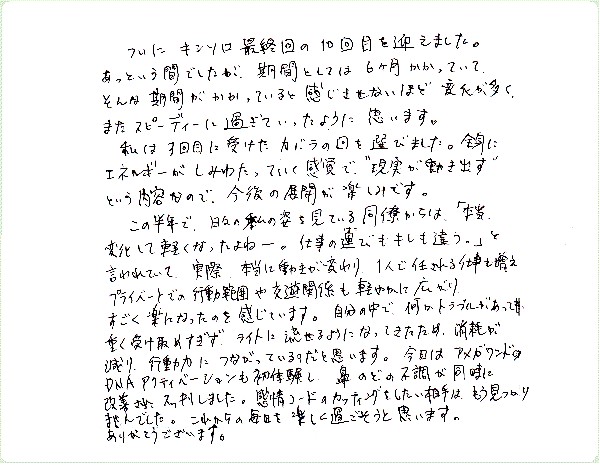 ついに キンソロ 最終回の10回目を迎えました。
あっという間でしたが、期間としては 6ヶ月かかっていて、
そんな期間がかかっていると感じさせないほど 変化が多く、
またスピーディーに過ぎていったように 思います。
私は3回目に受けた カバラの回を選びました。全身に
エネルギーが しみわたっていく感覚で、"現実が動き出す"
という内容なので、今後の展開が楽しみです。
この半年で、日々の私の姿を見ている同僚からは、「本当、
変化して軽くなったよねー。仕事の運びもキレも違う。」と
言われていて、実際、本当に動きが変わり、1人で任される仕事も増え
プライベートでの行動範囲や交遊関係も軽やかに広がり
すごく楽になったのを感じています。自分の中で、何かトラブルがあっても
重く受け取めすぎず ライトに流せるようになってきたため、消耗が
減り、行動力に つながっているのだと思います。今日は アメガワンドの
DNAアクティベーションも初体験し、鼻のどの不調が同時に
改善され、スッキリしました。感情コードのカッティングをしたい相手は、もう見つかり
ませんでした。これからの毎日を楽しく過ごそうと思います。
ありがとうございます。